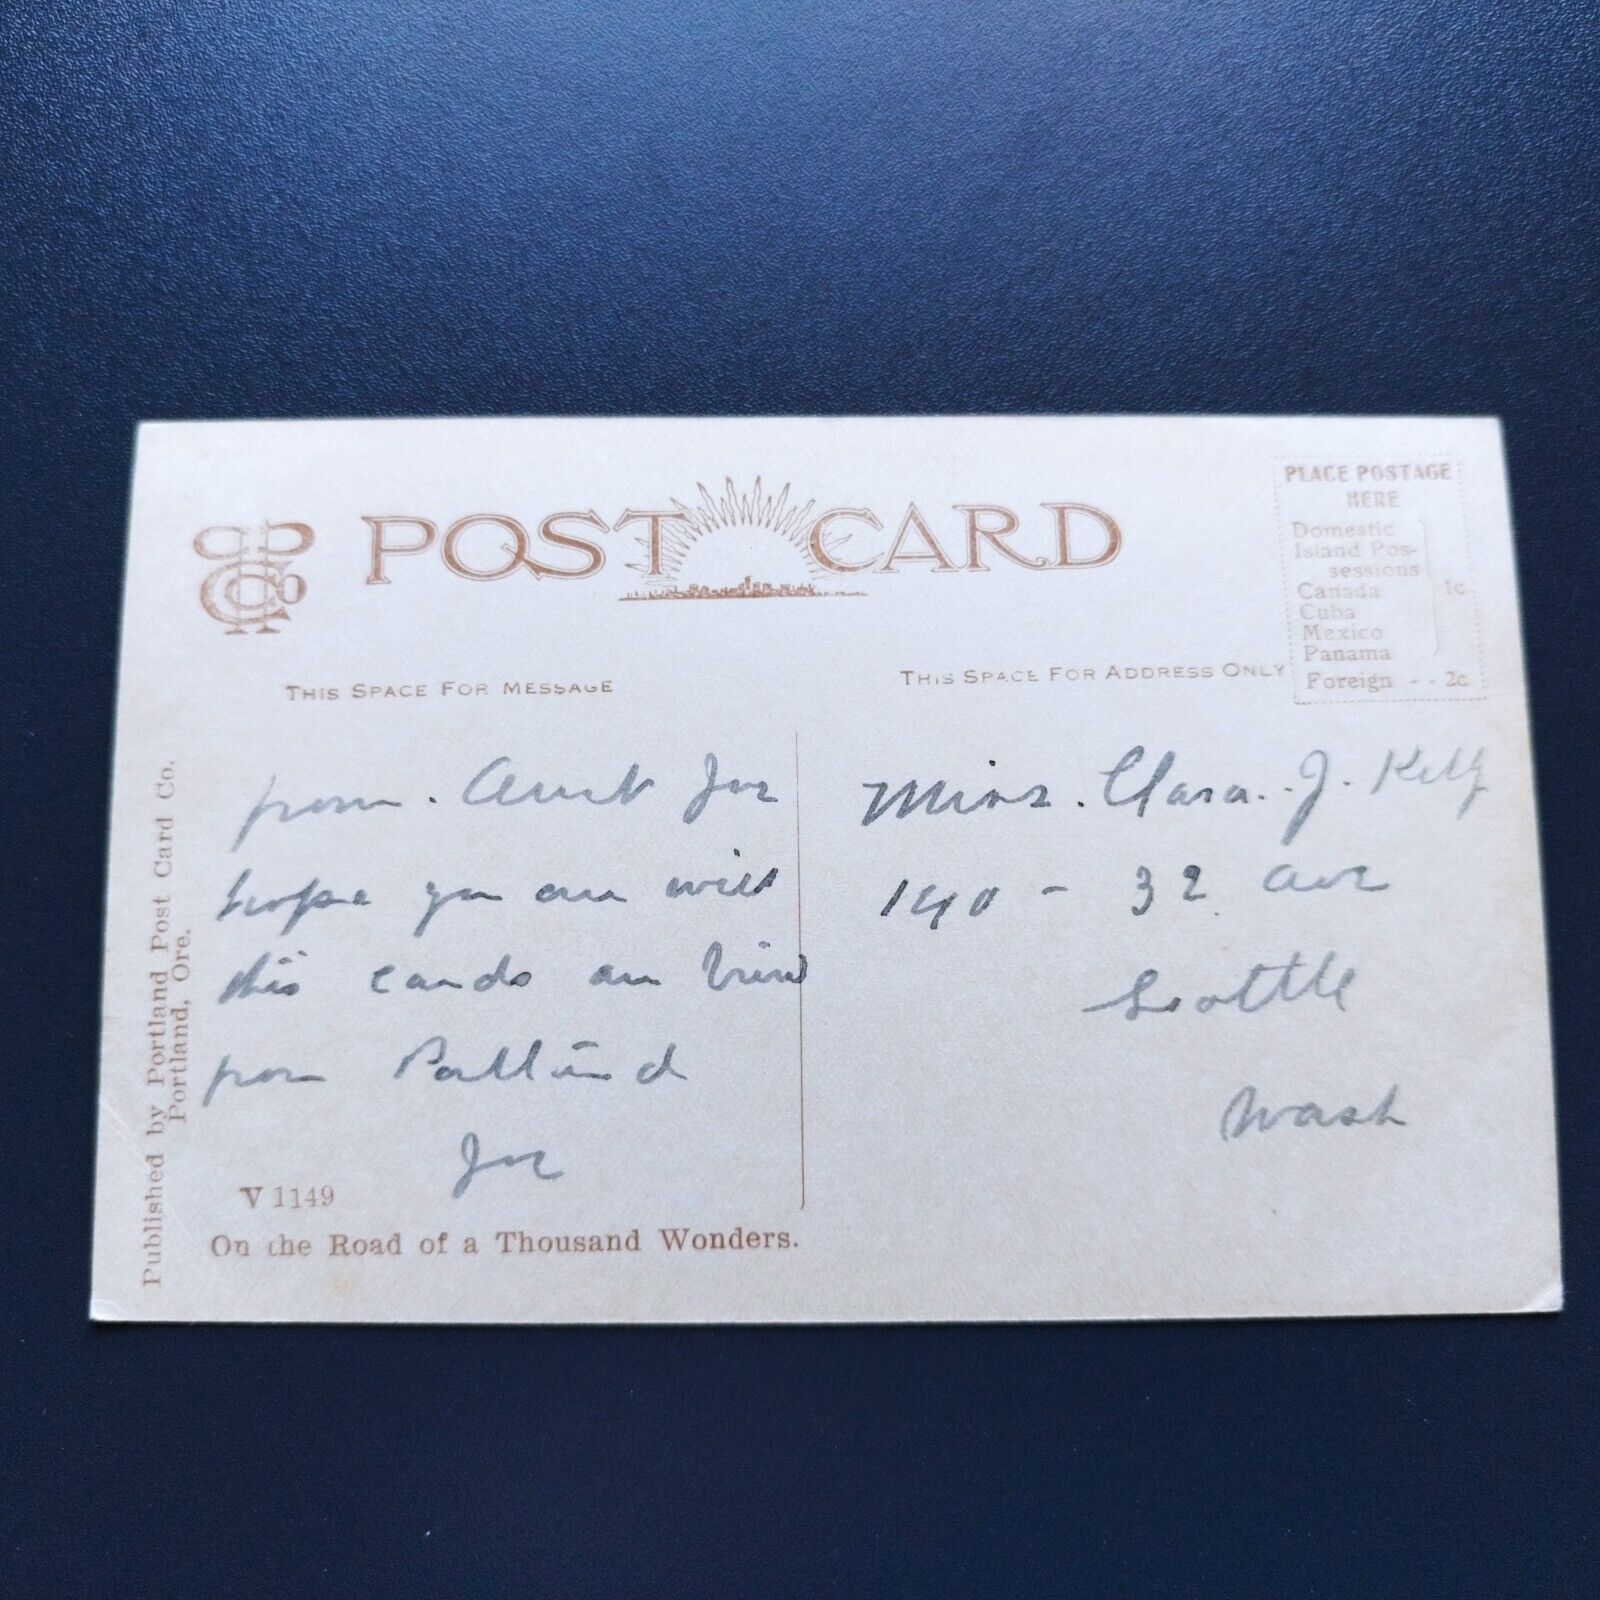 POST CARD
PLACE POSTAGE
HERE
Domestic
Island Pos-
sessions
Canada
Cuba
Mexico
Panama
1c
Foreign - - 2c
THIS SPACE FOR MESSAGE
THIS SPACE FOR ADDRESS ONLY
from. Aunt Joe
hope you are well
this cards are view
from Portland
Joe
Miss. Clara. J.
140 - 32 ave
Seattle
Wash
V 1149
On the Road of a Thousand Wonders.
Published by Portland Post Card Co.
Portland, Ore.